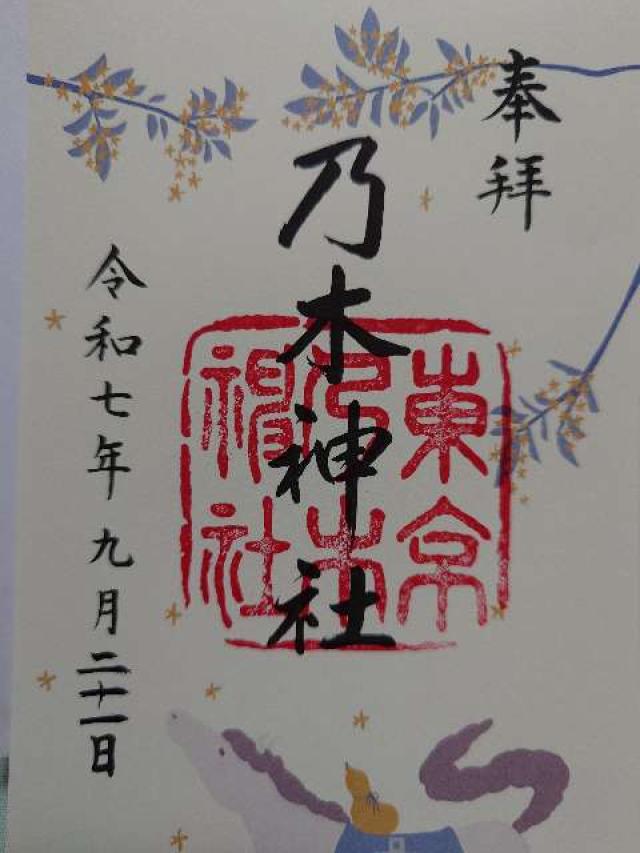 奉拝
乃木神社
東京
乃木
神社
令和七年九月二十一日